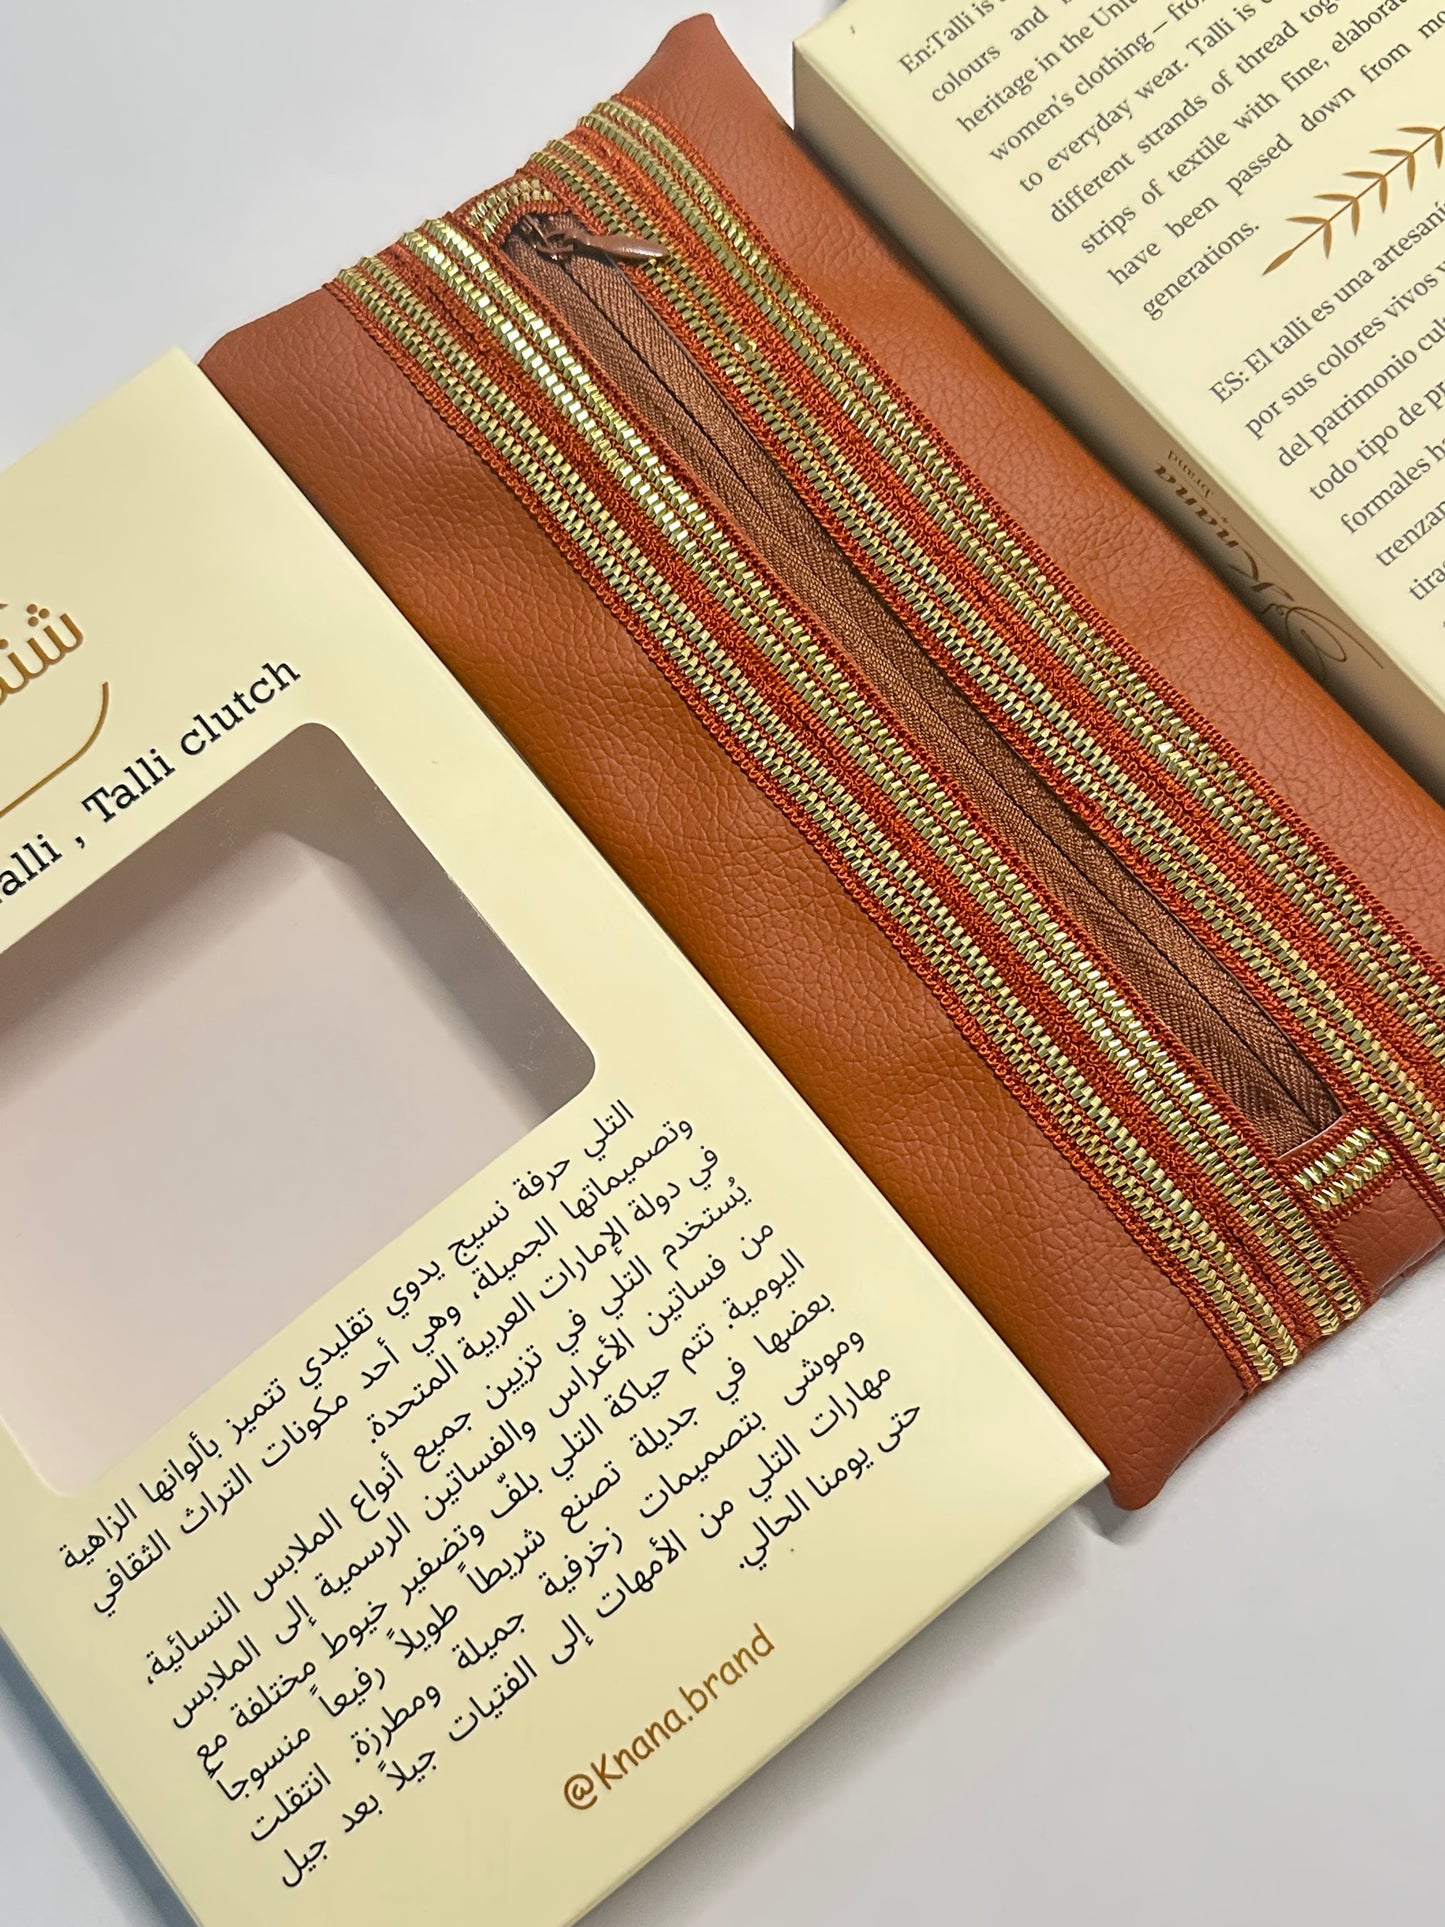 Talli clutch
التلي حرفة نسيج يدوي تقليدي تتميز بألوانها الزاهية
وتصميماتها الجميلة، وهي أحد مكونات التراث الثقافي
في دولة الإمارات العربية المتحدة.
يُستخدم التلي في تزيين جميع أنواع الملابس النسائية،
من فساتين الأعراس والفساتين الرسمية إلى الملابس
اليومية. تتم حياكة التلي بلفّ وتضفير خيوط مختلفة مع
بعضها في جديلة تصنع شريطاً طويلاً رفيعاً منسوجاً
وموشى بتصميمات زخرفية جميلة ومطرزة. انتقلت
مهارات التلي من الأمهات إلى الفتيات جيلاً بعد جيل
حتى يومنا الحالي.
@Knana.brand
En:Talli is
colours and
heritage in the
women's clothing –
to everyday wear. Talli is
different strands of thread
strips of textile with fine,
have been passed down from
generations.
ES: El talli es una artesanía
por sus colores vivos
del patrimonio
todo tipo de
formales
Knana
brand